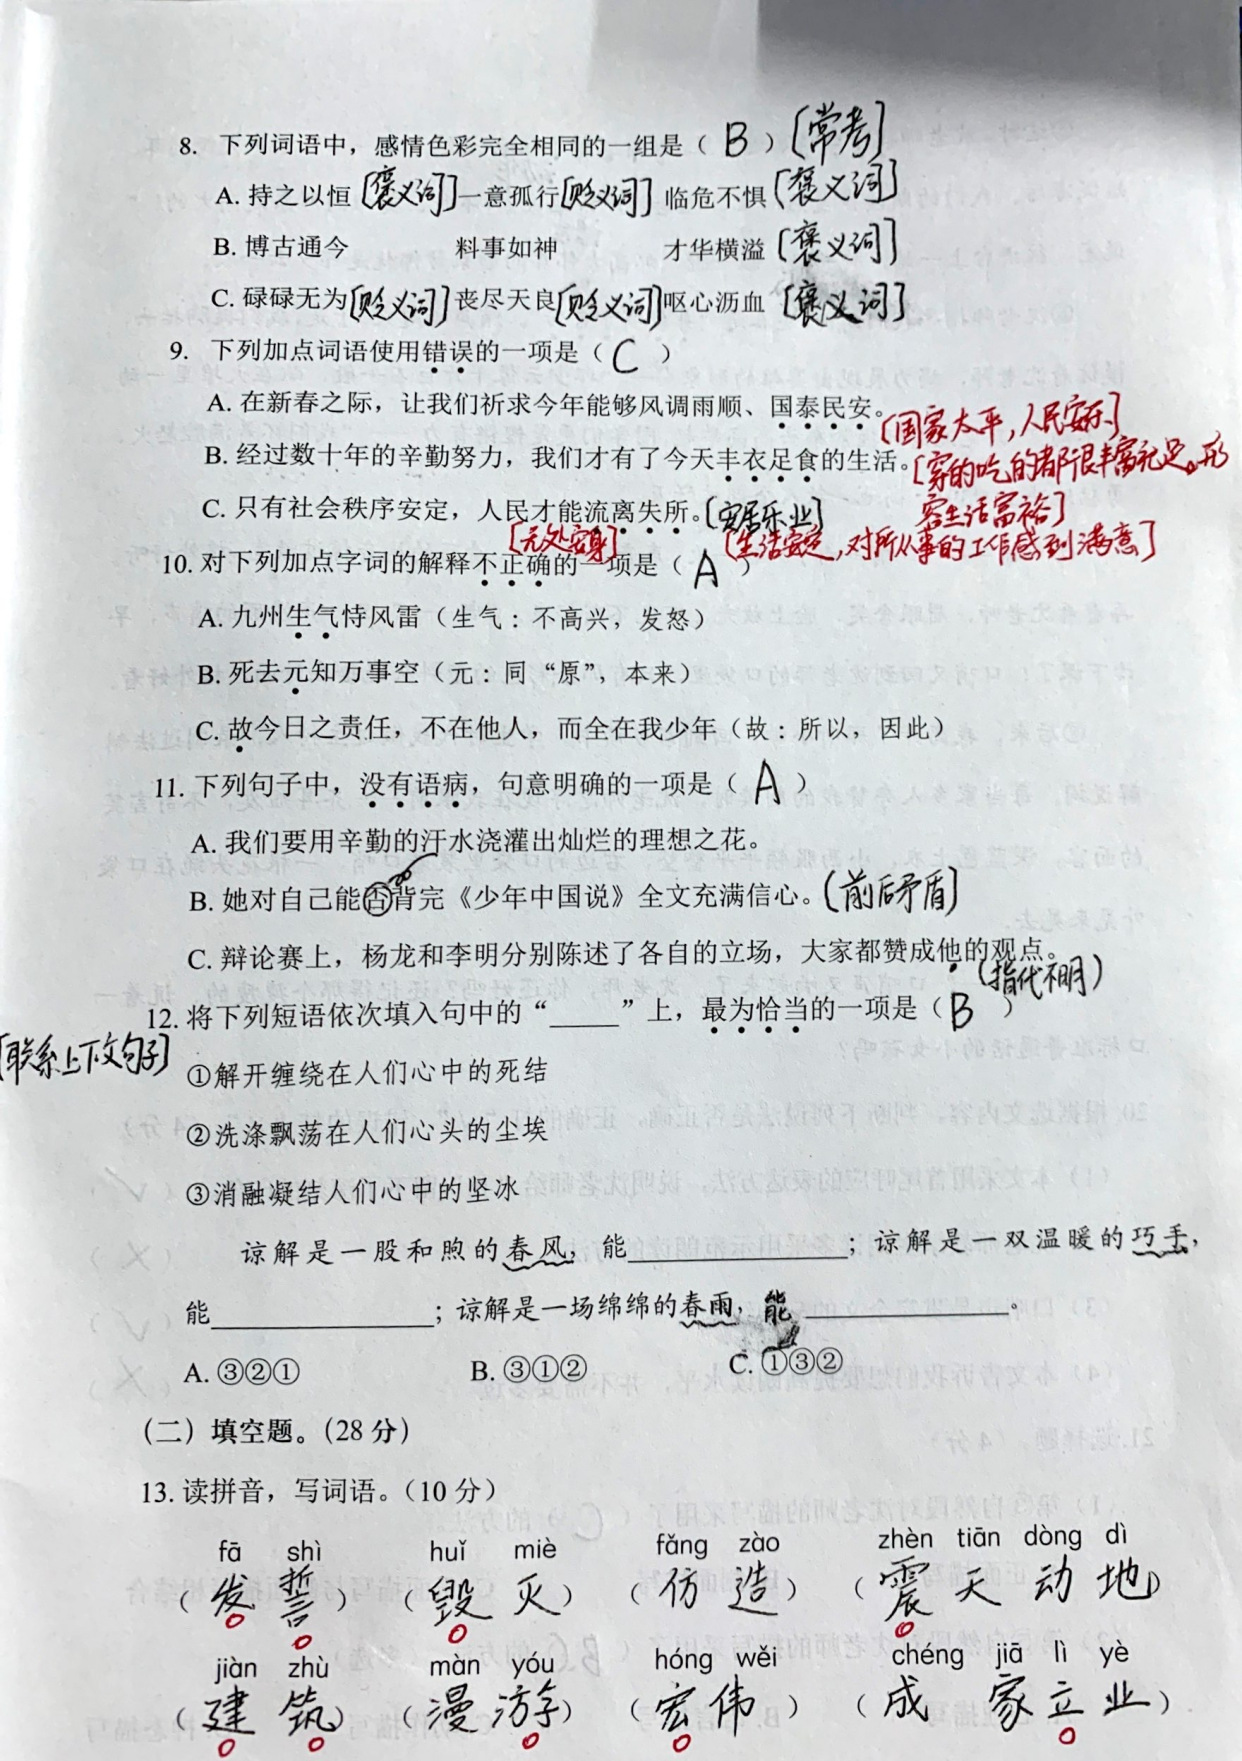 8. 下列词语中，感情色彩完全相同的一组是（ B ）[常考]
A. 持之以恒[褒义词]一意孤行[贬义词] 临危不惧[褒义词]
B. 博古通今 料事如神 才华横溢[褒义词]
C. 碌碌无为[贬义词]丧尽天良[贬义词]呕心沥血[褒义词]
9. 下列加点词语使用错误的一项是（ C ）
A. 在新春之际，让我们祈求今年能够风调雨顺、国泰民安。
[国家太平，人民安乐]
B. 经过数十年的辛勤努力，我们才有了今天丰衣足食的生活。[穿的吃的都很丰富充足。形
容生活富裕]
C. 只有社会秩序安定，人民才能流离失所。[安居乐业]
[无处安身] [生活安定，对所从事的工作感到满意]
10. 对下列加点字词的解释不正确的一项是（ A ）
A. 九州生气恃风雷（生气：不高兴，发怒）
B. 死去元知万事空（元：同“原”，本来）
C. 故今日之责任，不在他人，而全在我少年（故：所以，因此）
11. 下列句子中，没有语病，句意明确的一项是（ A ）
A. 我们要用辛勤的汗水浇灌出灿烂的理想之花。
B. 她对自己能否背完《少年中国说》全文充满信心。（前后矛盾）
C. 辩论赛上，杨龙和李明分别陈述了各自的立场，大家都赞成他的观点。
（指代不明）
12. 将下列短语依次填入句中的“_____”上，最为恰当的一项是（ B ）
[联系上下文句子]
①解开缠绕在人们心中的死结
②洗涤飘荡在人们心头的尘埃
③消融凝结人们心中的坚冰
谅解是一股和煦的春风，能________________；谅解是一双温暖的巧手，
能________________；谅解是一场绵绵的春雨，能 ________________。
A. ③②① B. ③①② C. ①③②
（二）填空题。（28 分）
13. 读拼音，写词语。（10 分）
fā shì huǐ miè fǎng zào zhèn tiān dòng dì
（发誓）（毁灭）（仿造）（震天动地）
jiàn zhù màn yóu hóng wěi chéng jiā lì yè
（建筑）（漫游）（宏伟）（成家立业）